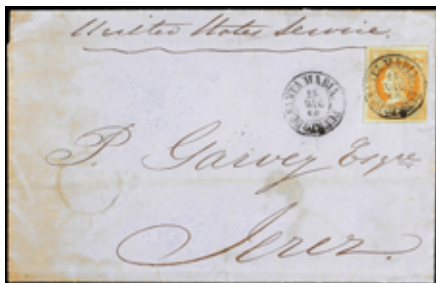 United States Service.
SANTA MARIA
P. Garvey Esqre
Jerez.